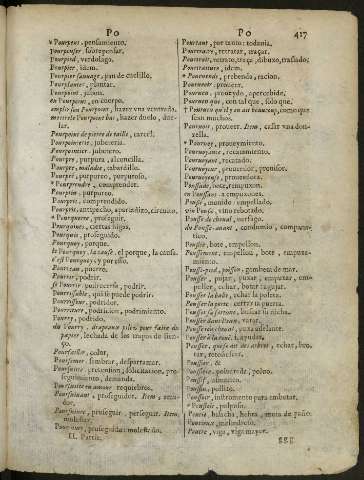 PO
PO
427
* Pourpens, pensamiento.
Pourpenser, sobrepensar.
Pourpied, verdolaga.
Pourpier, idem.
Pourpier sauvage, pan de cuclillo.
Pourplanter, plantar.
Pourpoint, jubon.
en Pourpoint, en cuerpo.
emplir son Pourpoint, hazer una
mettre le Pourpoint bas, hazer duelo, duelar.
Pourpoint de pierre de taille, carcel.
Pourpointerie, juboneria.
Pourpointier, jubonero.
Pourpre, purpura, alconcilla.
Pourpre, maladie, tabardillo.
Pourpré, purpureo, purpuroso.
* Pourprendre, comprender.
Pourprin, purpureo.
Pourpris, comprendido.
Pourpris, antipecho, circuito.
* Pourquerre, proseguir.
Pourquis, proseguido.
Pourquoy, porque.
le Pourquoy, la cause, el porque, la causa.
c'est Pourquoy, y por esso.
Pourreau, puerro.
Pourrir, podrir.
se Pourrir, podrirse.
Pourrissable, que se puede podrir.
Pourrisseur, podridor.
Pourriture, podricion, podrimiento.
Pourry, podrido.
du Pourry, drapeaux pilez pour faire du
papier, hechada de los trapos de lienço.
Poursaillir, colar.
Poursemer, sembrar, desparramar.
Poursuite, pretention, solicitacion, proseguimiento, demanda.
Poursuite en amour, requiebros.
Poursuivant, proseguidor. Item,
Poursuivre, proseguir, perseguir. Item,
molestar.
Poursuivy, proseguido; molestado.
II. Partie.
Pourtant, por tanto: todavia.
Pourtraire, retratar, traçar.
Pourtrait, retrato, traça, dibuxo, traslado;
Pourtraiture, idem.
* Pourvende, prebenda, racion.
Pourveoir, proveer.
Pourveu, proveydo, apercebido.
Pourveu que, con tal que, solo que.
* Pourveu qu'il y en ait beaucoup, como que
sean muchos.
Pourvoir, proveer. Item, casar una donzella.
* Pourvoy, proveymiento.
Pourvoyance, recatamiento.
Pourvoyant, recatado.
Pourvoyeur, proveedor, prensor.
Pourvoyeuse, proveedora.
Poussade, bote, rempuxon.
en Poussant, a empuxones.
Poussé, movido: empellado.
vin Poussé, vino rebotado.
Pousse de cheval, huelfago.
du Pousse-avant, condumio, companatico.
Poussée, bote, empellon.
Poussement, empellon, bote, rempuxamiento.
Pousse-pied, poisson, gambeta de mar.
Pousser, pujar, puxar, empuxar, empeller, echar, botar,
Pousser la balle, echar la pelota.
Pousser la porte, cerrar la puerta.
Pousser sa fortune, buscar su nicho.
Pousser dans l'eau, varar.
Pousser le cheval, puxa adelante.
Pousser à la roue, i. ayudar.
Pousser, que se dit des arbres, echar, brotar, retoñecer.
Poussier,
Poussiere, polvareda, polvo.
Poussif, asmatico.
Poussin, pollito.
Poussoir, instrumento para embutar.
* Poussole, polvoso.
Poutie, hebra, mota de paño.
Poutieux, melindroso.
Poutre, viga, viga mayor.